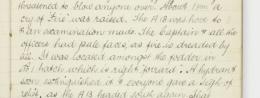 threatened to blow anyone over. About 1 pm a
cry of Fire was raised. The A 13 was hove to
& an examination made. The Captain & all the
officers had pale faces, as fire is dreaded by
all. It was located amongst the fodder in
hatch which is right forward. A hydrant
soon extinguished it & everyone gave a sigh of
relief, as the A 13 headed